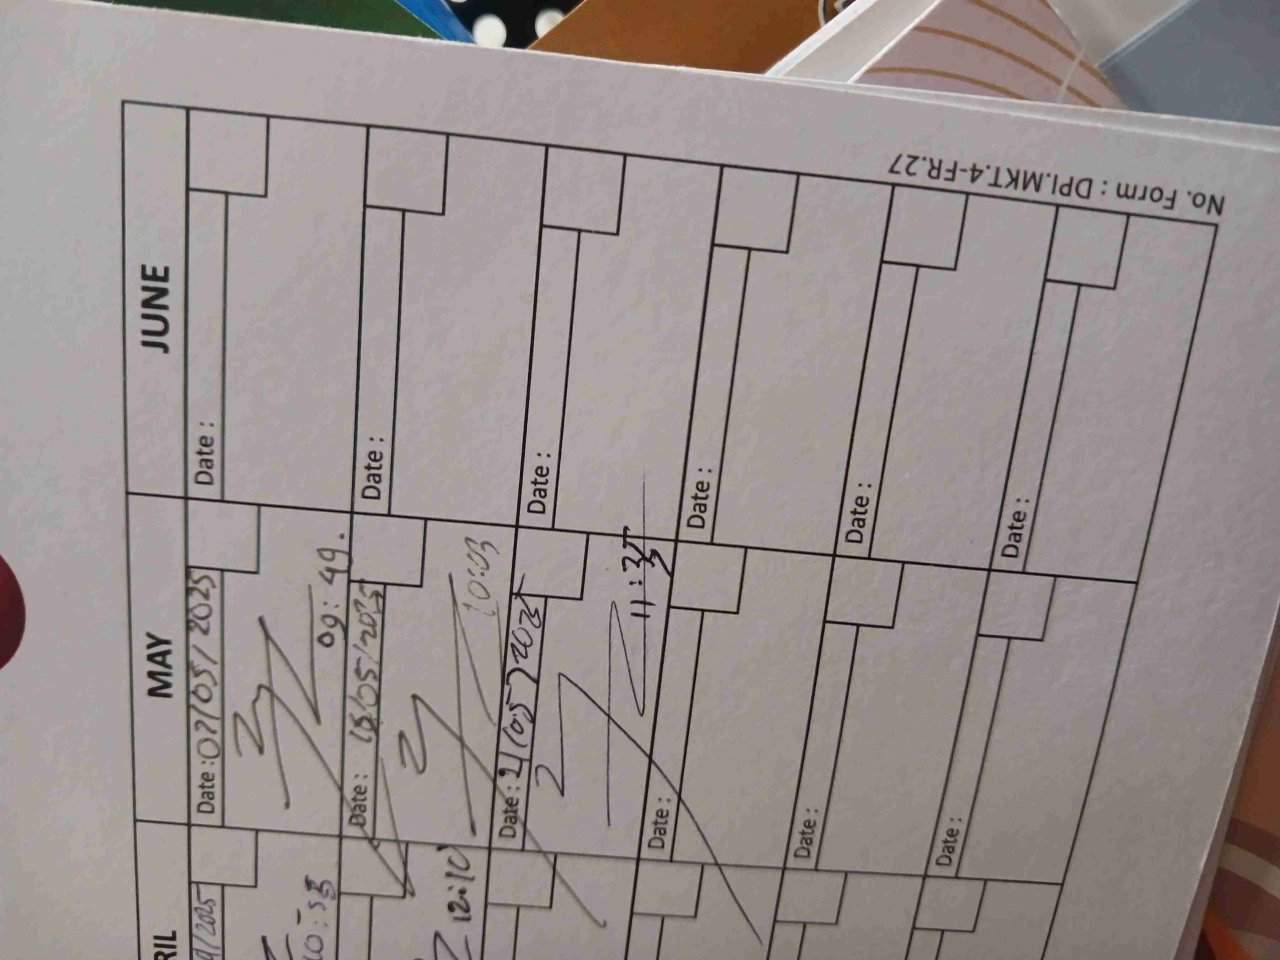 No. Form : DPI.MKT.4-FR.27
RIL
MAY
JUNE
9/2025
Date : 07/05/2025
Date :
10:53
09:49.
Date : 15/05/2025
Date :
12:10
10:03
Date : 21/05/2025
Date :
11:35
Date :
Date :
Date :
Date :
Date :
Date :